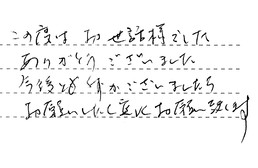 この度は お世話様でした
ありがとうございました
今後とも何かございましたら
お願いしたく宜しくお願い致します